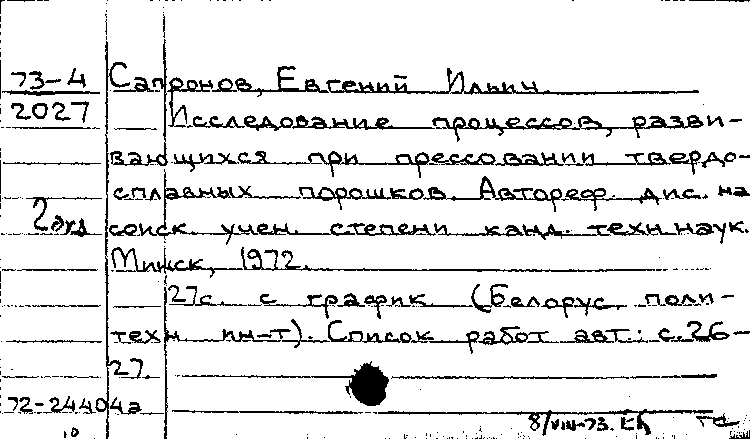 73-4 Сапронов, Евгений Ильич.
2027 Исследование процессов, разви-
вающихся при прессовании твердо-
сплавных порошков. Автореф. дис. на
2 экз соиск. учен. степени канд. техн. наук.
Минск, 1972.
27с. с график. (Белорус. поли-
техн. ин-т). Список работ авт.: с. 26-
27.
72-24404а
8/VIII-73.
10